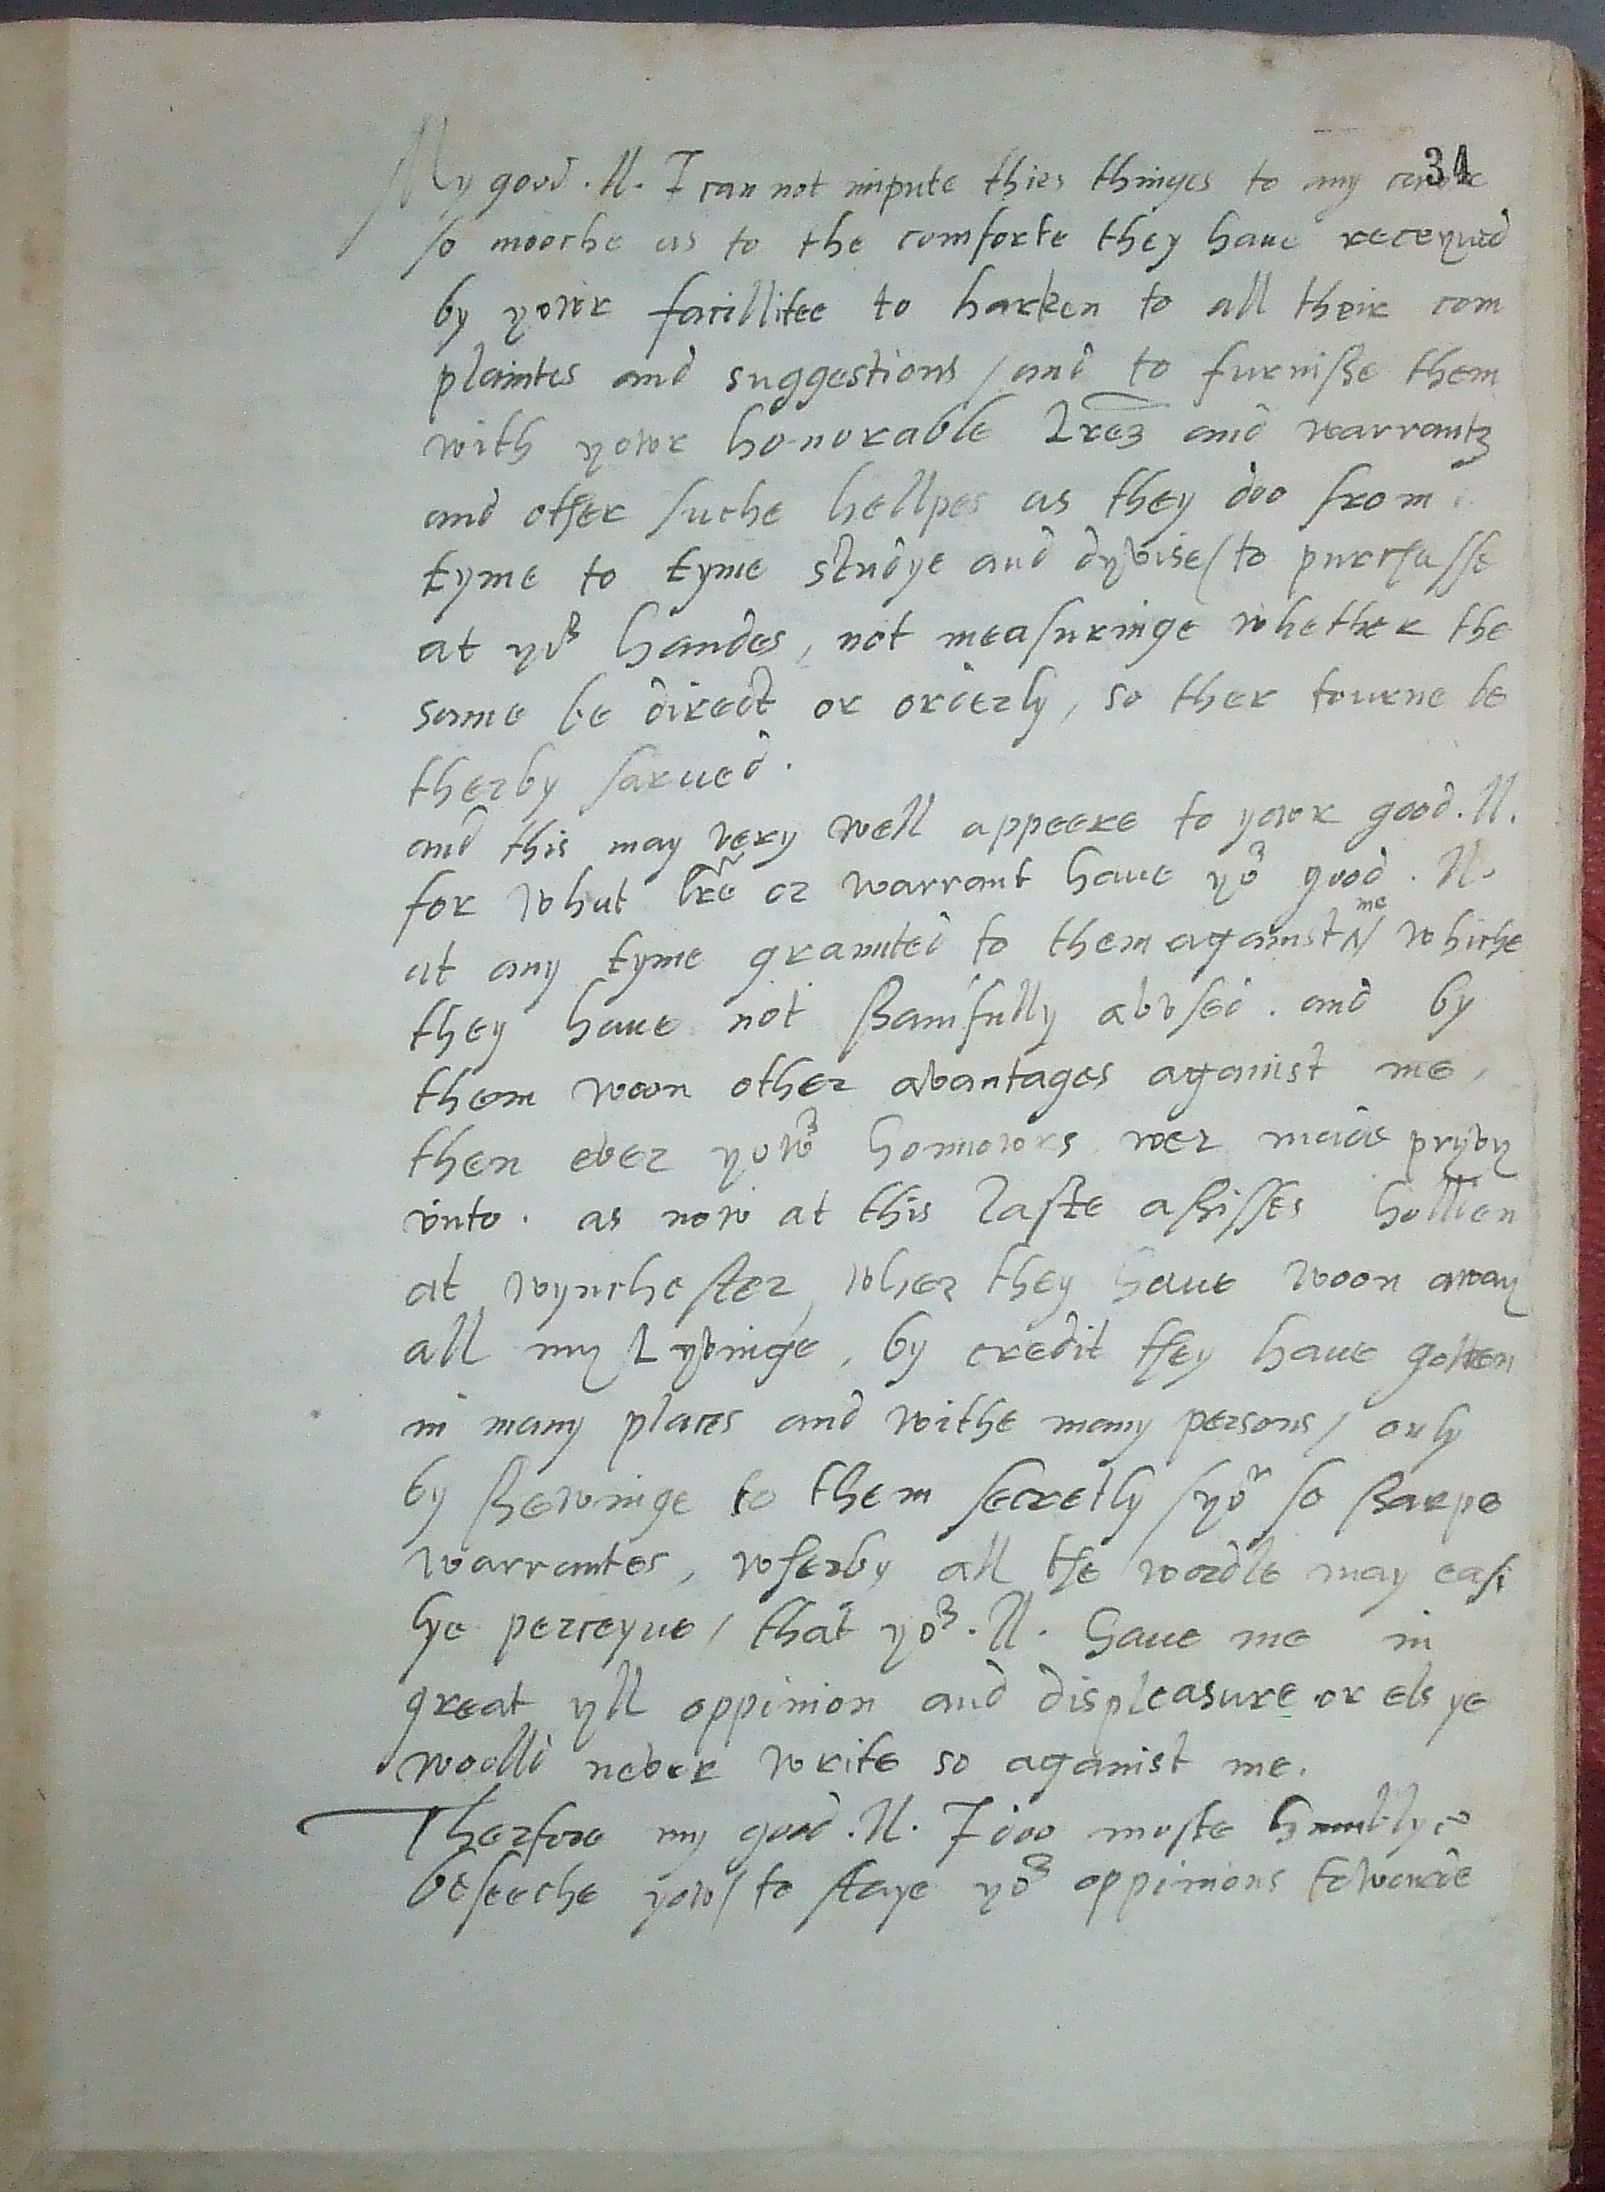 34
My good .ll. I can not impute thies thinges to any
so mooche as to the comforte they haue receyued
by yowr facillitee to harken to all their com
plaintes and suggestions / and to furnishe them
with yowr honorable lres and warrants
and other suche hellpes as they doo from
tyme to tyme studye and dyvise / to purchasse
at yor handes, not measuringe whether the
same be direct or orderly, so ther tourne be
therby sarued.
and this may very well appeere to yowr good .ll.
for what lre or warrant haue yor good .ll.
at any tyme graunted to them against ^me / whiche
they haue not shamfully abvsed. and by
them woon other avantages against me,
then ever yowr honnowrs wer made pryvy
vnto. as now at this laste assisses hollden
at wynchester, wher they haue woon away
all my Lyvinge, by credit they haue gotten
in many places and withe many persons / only
by shewinge to them secretly / yor so sharpe
warrantes, wherby all the wordle may easi
lye perceyue / that yor .ll. haue me in
great yll oppinion and displeasure or els ye
woolld never write so against me.
Therfore my good .ll. I doo moste humblye
beseeche yow / to staye yor oppinions towarde